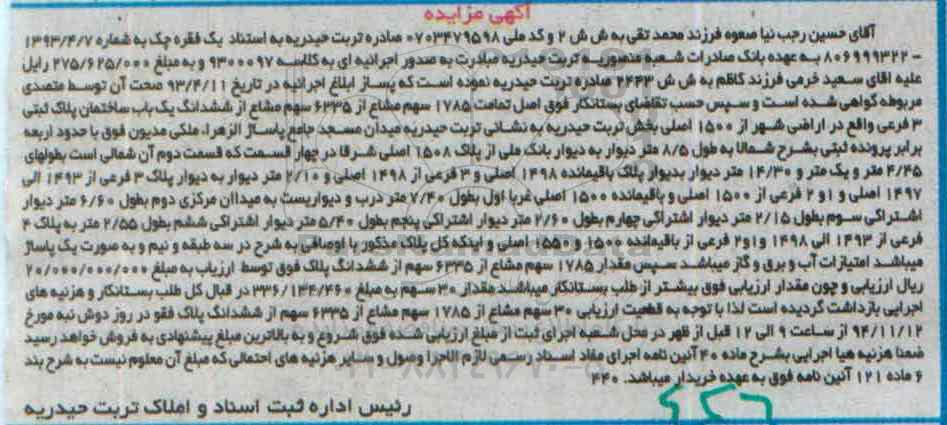 آگهی مزایده
آقای حسین رجب نیا صعوه فرزند محمد تقی به ش ش ۲ و کد ملی ۰۷۰۳۴۷۹۵۹۸ صادره تربت حیدریه به استناد یک فقره چک به شماره ۱۳۹۳/۴/۷
– ۸۰۶۹۹۹۳۲۲ به عهده بانک صادرات شعبه منصوریه تربت حیدریه مبادرت به صدور اجرائیه ای به کلاسه ۹۳۰۰۰۹۷ و به مبلغ ۲۷۵/۶۲۵/۰۰۰ رایل
علیه اقای سعید خرمی فرزند کاظم به ش ش ۲۴۴۳ صادره تربت حیدریه نموده است که پس از ابلاغ اجرائیه در تاریخ ۹۳/۴/۱۱ صحت آن توسط متصدی
مربوطه گواهی شده است و سپس حسب تقاضای بستانکار فوق اصل تمامت ۱۷۸۵ سهم مشاع از ۶۳۳۵ سهم مشاع از ششدانگ یک باب ساختمان پلاک ثبتی
۳ فرعی واقع در اراضی شهر از ۱۵۰۰ اصلی بخش تربت حیدریه به نشانی تربت حیدریه میدان مسجد جامع پاساژ الزهرا، ملکی مدیون فوق با حدود اربعه
برابر پرونده ثبتی بشرح شمالا به طول ۸/۵ متر دیوار به دیوار بانک ملی از پلاک ۱۵۰۸ اصلی شرقا در چهار قسمت که قسمت دوم آن شمالی است بطولهای
۴/۴۵ متر و یک متر و ۱۴/۳۰ متر دیوار بدیوار پلاک باقیمانده ۱۴۹۸ اصلی و ۳ فرعی از ۱۴۹۸ اصلی و ۲/۱۰ متر دیوار به دیوار پلاک ۳ فرعی از ۱۴۹۳ الی
۱۴۹۷ اصلی و ۱و ۲ فرعی از ۱۵۰۰ اصلی و باقیمانده ۱۵۰۰ اصلی غربا اول بطول ۷/۴۰ متر درب و دیواریست به میداان مرکزی دوم بطول ۶/۶۰ متر دیوار
اشتراکی سوم بطول ۲/۱۵ متر دیوار اشتراکی چهارم بطول ۲/۶۰ متر دیوار اشتراکی پنجم بطول ۵/۴۰ متر دیوار اشتراکی ششم بطول ۲/۵۵ متر به پلاک ۴
فرعی از ۱۴۹۳ الی ۱۴۹۸ و۱و۲ فرعی از باقیمانده ۱۵۰۰ و ۱۵۵۰ اصلی و اینکه کل پلاک مذکور با اوصافی به شرح در سه طبقه و نیم و به صورت یک پاساژ
میباشد امتیازات آب و برق و گاز میباشد سپس مقدار ۱۷۸۵ سهم مشاع از ۶۳۳۵ سهم از ششدانگ پلاک فوق توسط ارزیاب به مبلغ ۲۰/۰۰۰/۰۰۰/۰۰۰
ریال ارزیابی و چون مقدار ارزیابی فوق بیشتر از طلب بستانکار میباشد مقدار ۳۰ سهم به مبلغ ۳۳۶/۱۳۴/۴۶۰ در قبال کل طلب بستانکار و هزنیه های
اجرایی بازداشت گردیده است لذا با توجه به قطعیت ارزیابی ۳۰ سهم مشاع از ۱۷۸۵ سهم مشاع از ۶۳۳۵ سهم از ششدانگ پلاک فقو در روز دوش نبه مورخ
۹۴/۱۱/۱۲ از ساعت ۹ الی ۱۲ قبل از ظهر در محل شعبه اجرای ثبت از مبلغ ارزیابی شده فوق شروع و به بالاترین مبلغ پیشنهادی به فروش خواهد رسید
ضمنا هزنیه هیا اجرایی بشرح ماده ۴۰ آئین نامه اجرای مفاد اسناد رسمی لازم الاجرا وصول و سایر هزنیه های احتمالی که مبلغ آن معلوم نیست به شرح بند
۶ ماده ۱۲۱ آئین نامه فوق به عهده خریدار میباشد. ۴۴۰
رئیس اداره ثبت اسناد و املاک تربت حیدریه